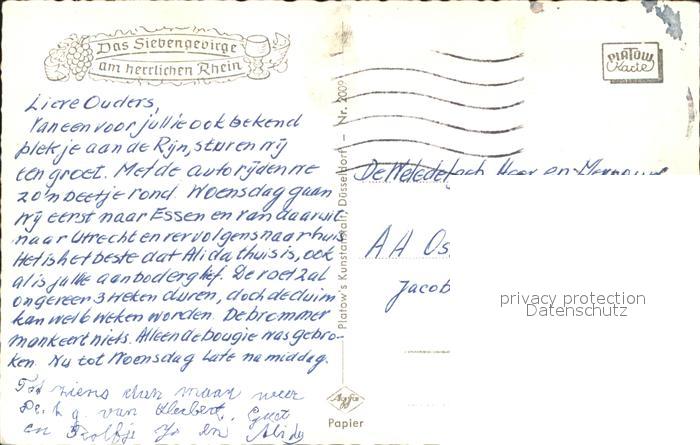 Das Siebengebirge
am herrlichen Rhein
PLATOW
Karte
Lieve Ouders,
Van een voor jullie ook bekend
plekje aan de Rijn, sturen wij
een groet. Met de auto rijden we
zo'n beetje rond. Woensdag gaan
wij eerst naar Essen en van daaruit
naar Utrecht en vervolgens naar huis
Het is het beste dat Alida thuis is, ook
al is jullie aanbod erg lief. De voet zal
ongeveer 3 weken duren, doch de duim
kan wel 6 weken worden. De brommer
mankeert niets. Alleen de bougie was gebro-
ken. Nu tot Woensdag late namiddag.
Tot ziens dan maar weer
van Herbert,
en Rolfje Jo en Alida
Platow's Kunstanstalt, Düsseldorf - Nr. 2009
De Weledelgeb Heer en Mevrouw
A H Os
Jacob
privacy protection
Datenschutz
Agfa
Papier